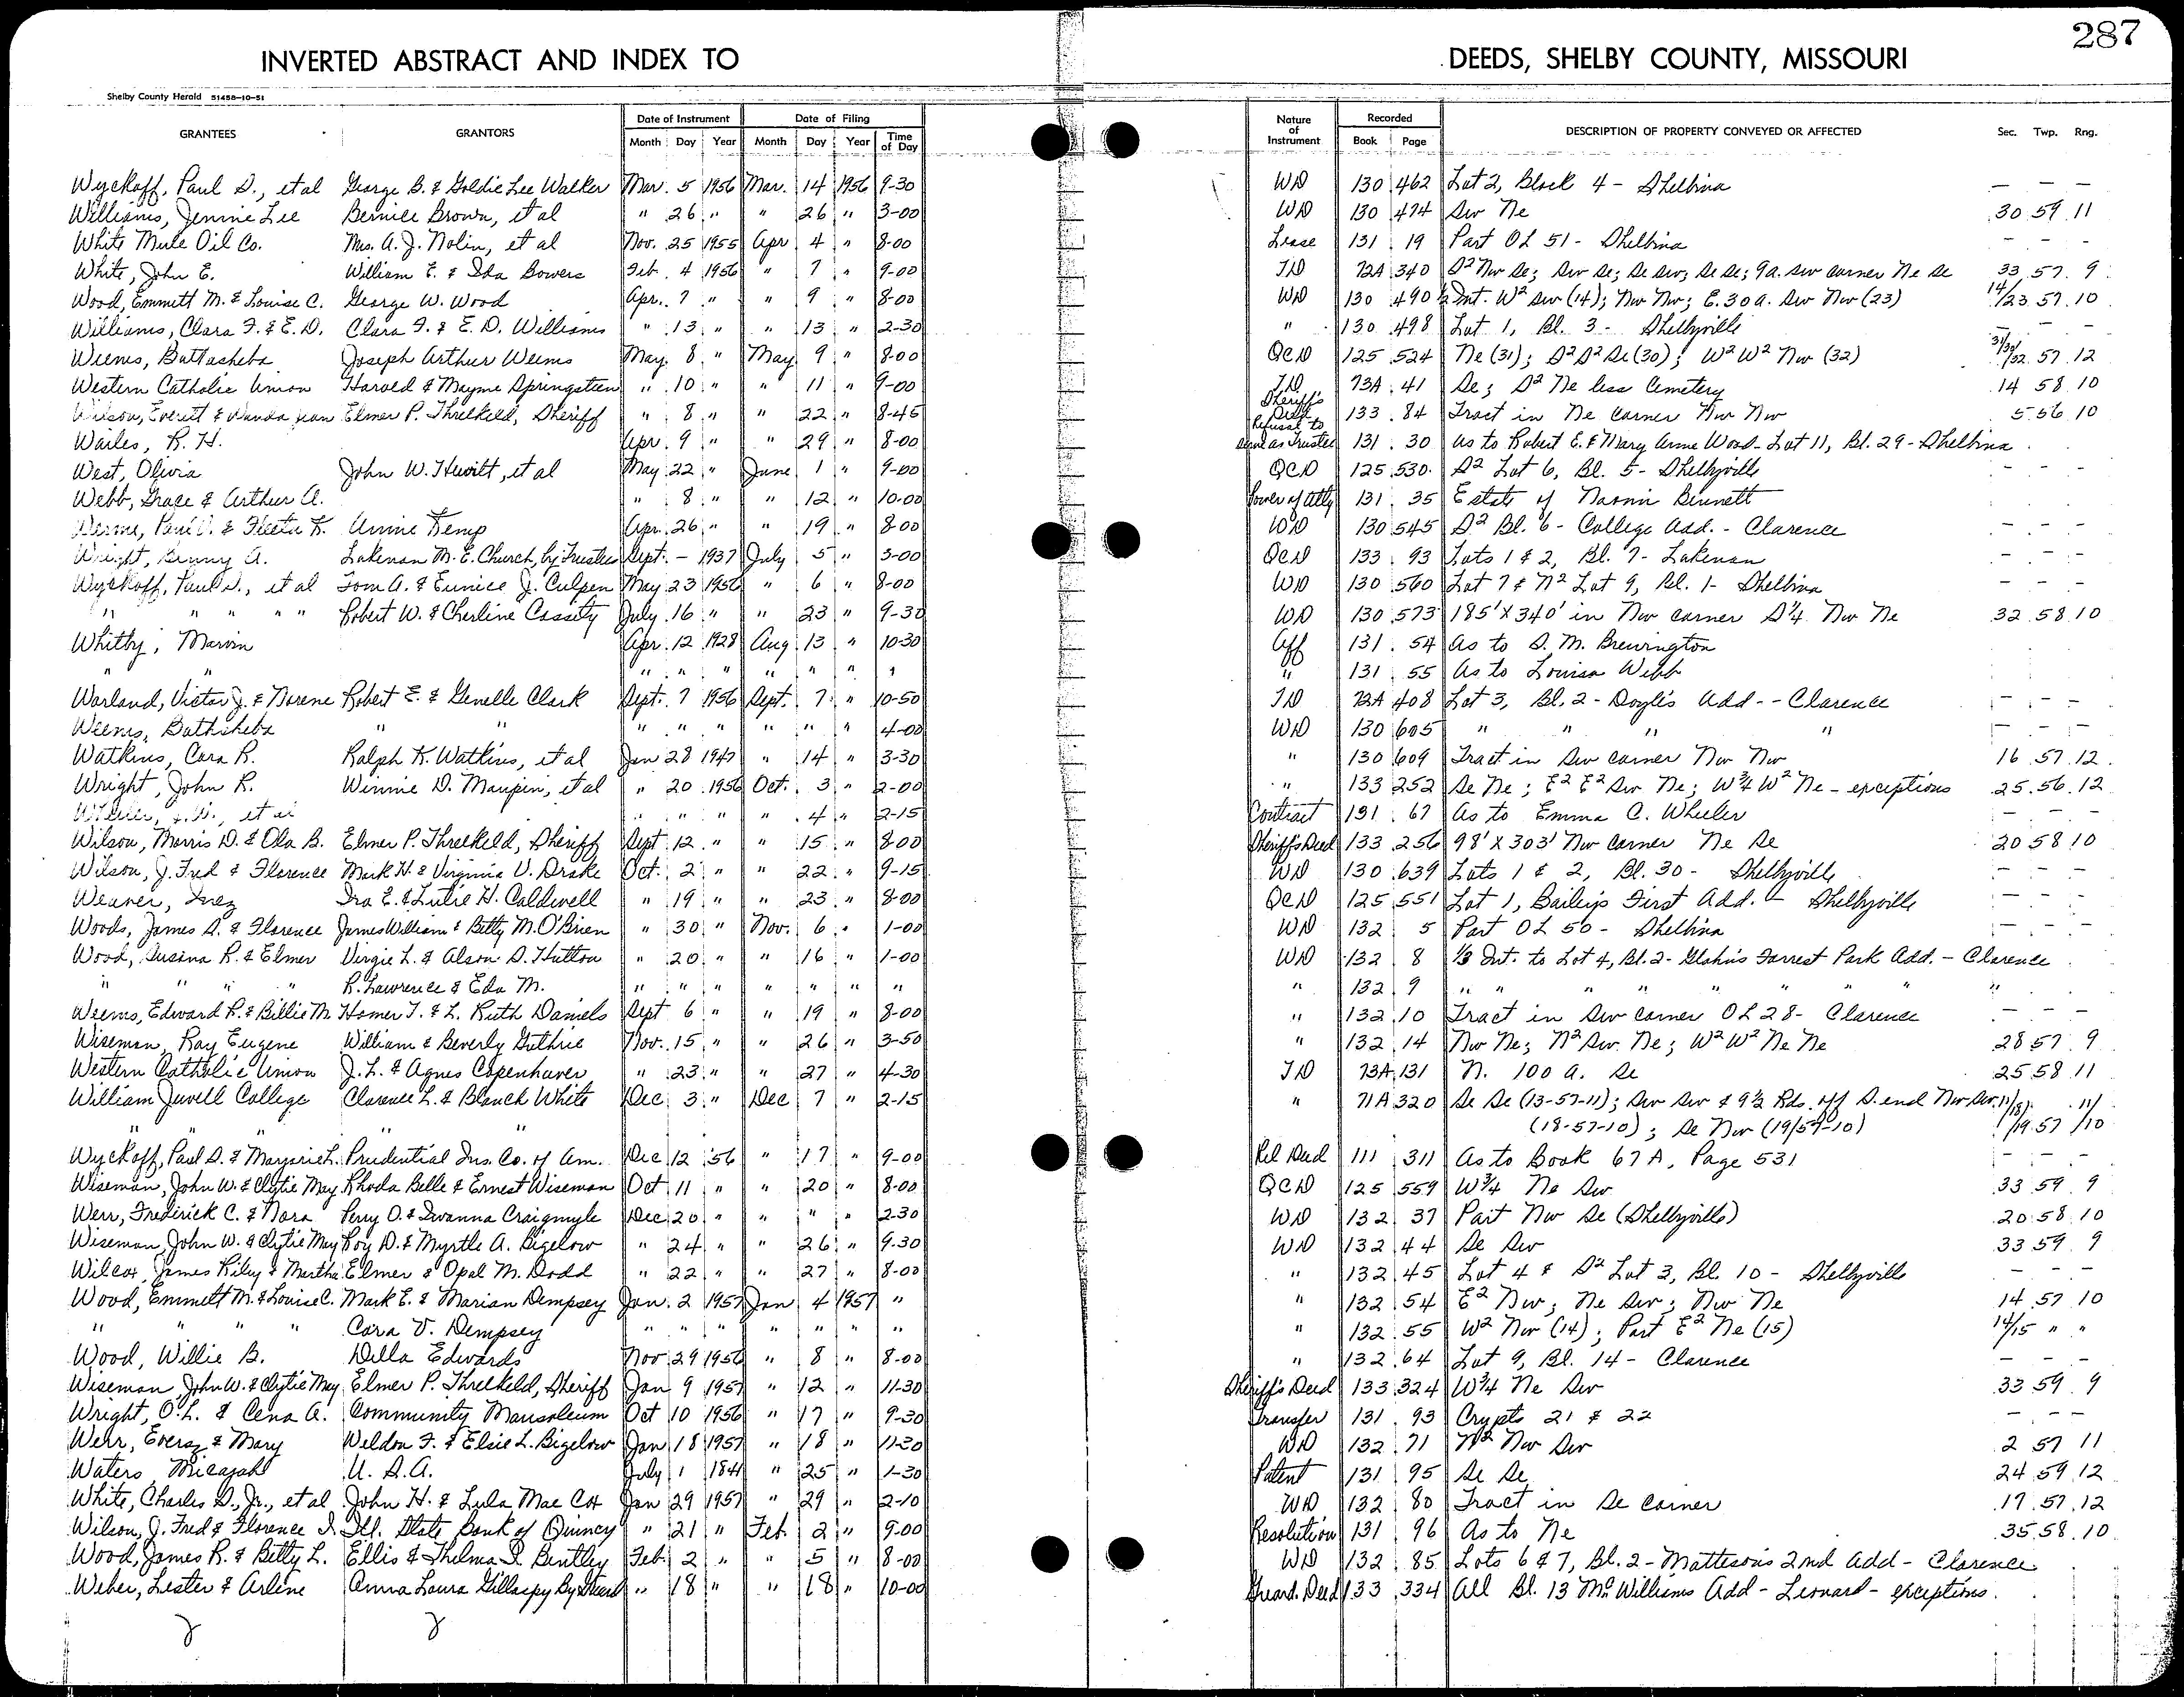 287
INVERTED ABSTRACT AND INDEX TO DEEDS, SHELBY COUNTY, MISSOURI
Shelby County Herald 51458-10-51
GRANTEES GRANTORS Date of Instrument Date of Filing Nature of Instrument Recorded DESCRIPTION OF PROPERTY CONVEYED OR AFFECTED Sec. Twp. Rng.
Month Day Year Month Day Year Time of Day Book Page
Wyckoff, Paul D., et al George B. & Goldie Lee Walker Mar. 5 1956 Mar. 14 1956 9-30 WD 130 462 Lot 2, Block 4 - Shelbina — — —
Williams, Jennie Lee Bernice Brown, et al " 26 " " 26 " 3-00 WD 130 474 Sw Ne 30 59 11
White Mule Oil Co. Mrs. A. J. Nolin, et al Nov. 25 1955 Apr 4 " 8-00 Lease 131 19 Part OL 51 - Shelbina - - -
White, John E. William E. & Ida Bowers Feb. 4 1956 " 7 " 9-00 TD 72A 340 S2 Nw Se; Sw Se; Se Sw; Se Se; 9a. Sw corner Ne Se 33 57 9
Wood, Emmett M. & Louise C. George W. Wood Apr. 7 " " 9 " 8-00 WD 130 490 ½ Int. W2 Sw (14); Nw Nw; E. 30 a. Sw Nw (23) 14/23 57 10
Williams, Clara F. & E. D. Clara F. & E. D. Williams " 13 " " 13 " 2-30 " 130 498 Lot 1, Bl. 3 - Shelbyville — — —
Weems, Battasheba Joseph Arthur Weems May 8 " May 9 " 8-00 QCD 125 524 Ne (31); S2 S2 Se (30); W2 W2 Nw (32) 31/30/32 57 12
Western Catholic Union Harold & Mayme Springsteen " 10 " " 11 " 9-00 TD 73A 41 Se; S2 Ne less Cemetery 14 58 10
Wilson, Everett & Wanda Jean Elmer P. Threlkeld, Sheriff " 8 " " 22 " 8-45 Sheriff's Deed 133 84 Tract in Ne corner Nw Nw 5 56 10
Wailes, R. H. Apr. 9 " " 29 " 8-00 Refusal to Serve as Trustee 131 30 As to Robert E. & Mary Anne Wood - Lot 11, Bl. 29 - Shelbina
West, Olivia John W. Hewitt, et al May 22 " June 1 " 9-00 QCD 125 530 S2 Lot 6, Bl. 5 - Shelbyville - - -
Webb, Grace & Arthur A. " 8 " " 12 " 10-00 Power of Atty 131 35 Estate of Naomi Bennett
Paul & Fleeta K. Annie Kemp Apr. 26 " " 19 " 8-00 WD 130 545 S2 Bl. 6 - College Add. - Clarence - - -
Wright, A. Lakenan M. E. Church, by Trustee Sept. - 1937 July 5 " 3-00 QCD 133 93 Lots 1 & 2, Bl. 7 - Lakenan - - -
Wyckoff, Paul D., et al Tom A. & Eunice J. Culpen May 23 1956 " 6 " 8-00 WD 130 560 Lot 7 & N2 Lot 9, Bl. 1 - Shelbina - - -
" " " " " Robert W. & Cherline Cassity July 16 " " 23 " 9-30 WD 130 573 185' X 340' in Nw corner S¼ Nw Ne 32 58 10
Whitby, Marvin Apr. 12 1928 Aug 13 " 10-30 Aff 131 54 As to S. M. Brewington
" " " " " " " " " " 131 55 As to Louisa Webb
Warland, Victor J. & Norene Robert E. & Genelle Clark Sept. 7 1956 Sept. 7 " 10-50 TD 72A 408 Lot 3, Bl. 2 - Doyle's Add - - Clarence - - -
Weems, Bathsheba " " " " " " " " 4-00 WD 130 605 " " " " - - -
Watkins, Cora R. Ralph K. Watkins, et al Jan 28 1947 " 14 " 3-30 " 130 609 Tract in Sw corner Nw Nw 16 57 12
Wright, John R. Winnie D. Maupin, et al " 20 1956 Oct. 3 " 2-00 " 133 252 Se Ne; E2 E2 Sw Ne; W¾ W2 Ne - exceptions 25 56 12
et al " " " " 4 " 2-15 Contract 131 67 As to Emma C. Wheeler - - -
Wilson, Morris D. & Ola B. Elmer P. Threlkeld, Sheriff Sept 12 " " 15 " 8-00 Sheriff's Deed 133 256 98' X 303' Nw corner Ne Se 20 58 10
Wilson, J. Fred & Florence Mark H. & Virginia V. Drake Oct. 2 " " 22 " 9-15 WD 130 639 Lots 1 & 2, Bl. 30 - Shelbyville - - -
Weaver, Inez Ira E. & Lutie H. Caldwell " 19 " " 23 " 8-00 QCD 125 551 Lot 1, Bailey's First Add. - Shelbyville - - -
Woods, James S. & Florence James William & Betty M. O'Brien " 30 " Nov. 6 " 1-00 WD 132 5 Part OL 50 - Shelbina - - -
Wood, Susina R. & Elmer Virgie L. & Alson D. Hutton " 20 " " 16 " 1-00 WD 132 8 ⅓ Int. to Lot 4, Bl. 2 - Glahn's Forrest Park Add. - Clarence
" " " " R. Lawrence & Eda M. " " " " " " " " 132 9 " " " " " " " "
Weems, Edward R. & Billie M. Homer T. & L. Ruth Daniels Sept 6 " " 19 " 8-00 " 132 10 Tract in Sw corner OL 28 - Clarence - - -
Wiseman, Ray Eugene William & Beverly Guthrie Nov. 15 " " 26 " 3-50 " 132 14 Nw Ne; N2 Sw Ne; W2 W2 Ne Ne 28 57 9
Western Catholic Union J. L. & Agnes Copenhaver " 23 " " 27 " 4-30 TD 73A 131 N. 100 a. Se 25 58 11
William Jewell College Clarence L. & Blanch White Dec 3 " Dec 7 " 2-15 " 71A 320 Se Se (13-57-11); Sw Sw & 9½ Rds. off S. end Nw Sw 11/18/ 11/
" " (18-57-10); Se Nw (19/57-10) 19 57 /10
Wyckoff, Paul D. & Marjorie L. Prudential Ins. Co. of Am. Dec 12 '56 " 17 " 9-00 Rel Deed 111 311 As to Book 67A, Page 531 - - -
Wiseman, John W. & Clytie May Rhoda Belle & Ernest Wiseman Oct 11 " " 20 " 8-00 QCD 125 559 W¾ Ne Sw 33 59 9
Werr, Frederick C. & Nora Perry O. & Iwanna Craigmyle Dec 20 " " " " 2-30 WD 132 37 Part Nw Se (Shelbyville) 20 58 10
Wiseman, John W. & Clytie May Roy D. & Myrtle A. Bigelow " 24 " " 26 " 9-30 WD 132 44 Se Sw 33 59 9
Wilcox, James Riley & Martha Elmer & Opal M. Dodd " 22 " " 27 " 8-00 " 132 45 Lot 4 & S2 Lot 3, Bl. 10 - Shelbyville - - -
Wood, Emmett M. & Louise C. Mark E. & Marian Dempsey Jan. 2 1957 Jan 4 1957 " " 132 54 E2 Nw; Ne Sw; Nw Ne 14 57 10
" " " " Cora V. Dempsey " " " " " " " " 132 55 W2 Nw (14); Part E2 Ne (15) 14/15 " "
Wood, Willie B. Della Edwards Nov 29 1956 " 8 " 8-00 " 132 64 Lot 9, Bl. 14 - Clarence - - -
Wiseman, John W. & Clytie May Elmer P. Threlkeld, Sheriff Jan 9 1957 " 12 " 11-30 Sheriff's Deed 133 324 W¾ Ne Sw 33 59 9
Wright, O. L. & Cena A. Community Mausoleum Oct 10 1956 " 17 " 9-30 Transfer 131 93 Crypts 21 & 22 - - -
Werr, Everaz & Mary Weldon F. & Elsie L. Bigelow Jan 18 1957 " 18 " 11-30 WD 132 71 N2 Nw Sw 2 57 11
Waters, Micajah U. S. A. July 1 1841 " 25 " 1-30 Patent 131 95 Se Se 24 59 12
White, Charles D., Jr., et al John H. & Lula Mae Cox Jan 29 1957 " 29 " 2-10 WD 132 80 Tract in Se corner 17 57 12
Wilson, J. Fred & Florence I. Ill. State Bank of Quincy " 21 " Feb. 2 " 9-00 Resolution 131 96 As to Ne 35 58 10
Wood, James R. & Betty L. Ellis & Thelma I. Bentley Feb. 2 " " 5 " 8-00 WD 132 85 Lots 6 & 7, Bl. 2 - Matteson's 2nd Add - Clarence
Weber, Lester & Arlene Anna Laura Gillaspy By Guard " 18 " " 18 " 10-00 Guard. Deed 133 334 All Bl. 13 McWilliams Add - Leonard - exceptions